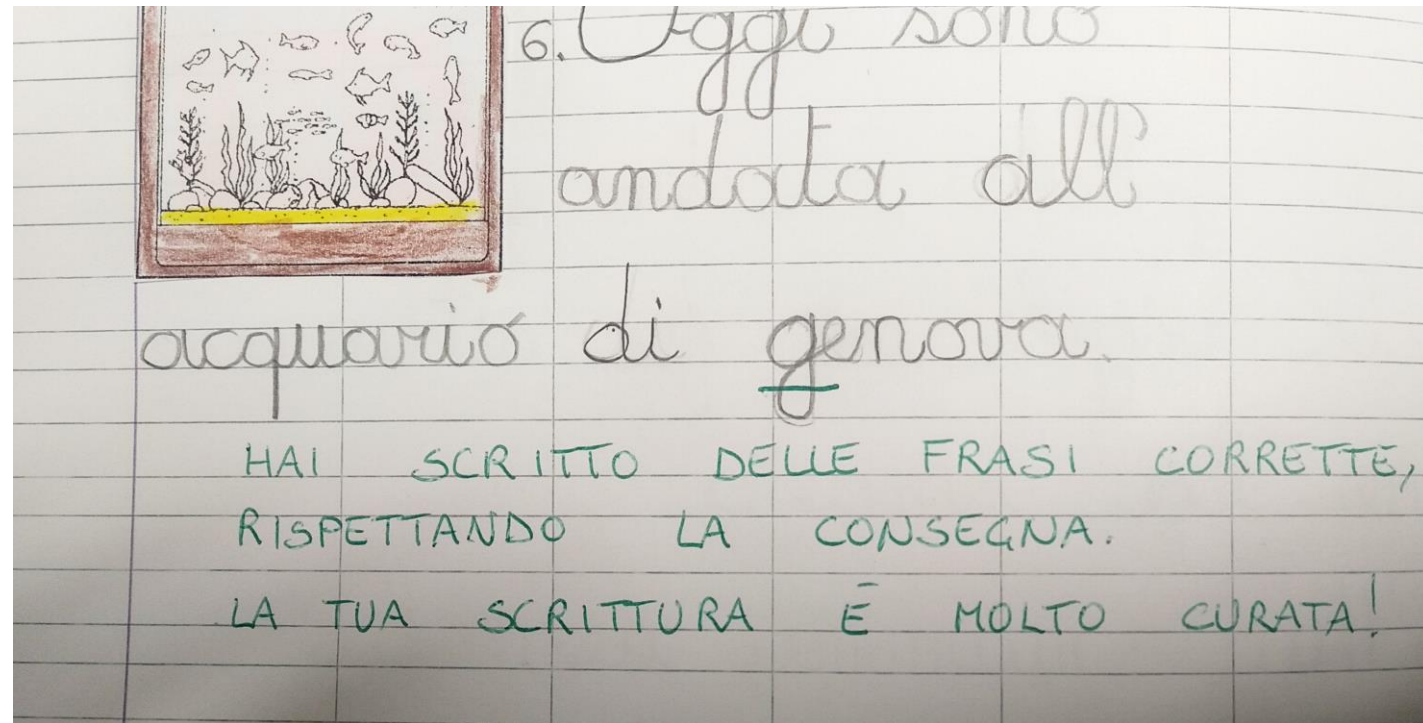 6. Oggi sono
andata all'
acquario di genova.
HAI SCRITTO DELLE FRASI CORRETTE,
RISPETTANDO LA CONSEGNA.
LA TUA SCRITTURA È MOLTO CURATA!